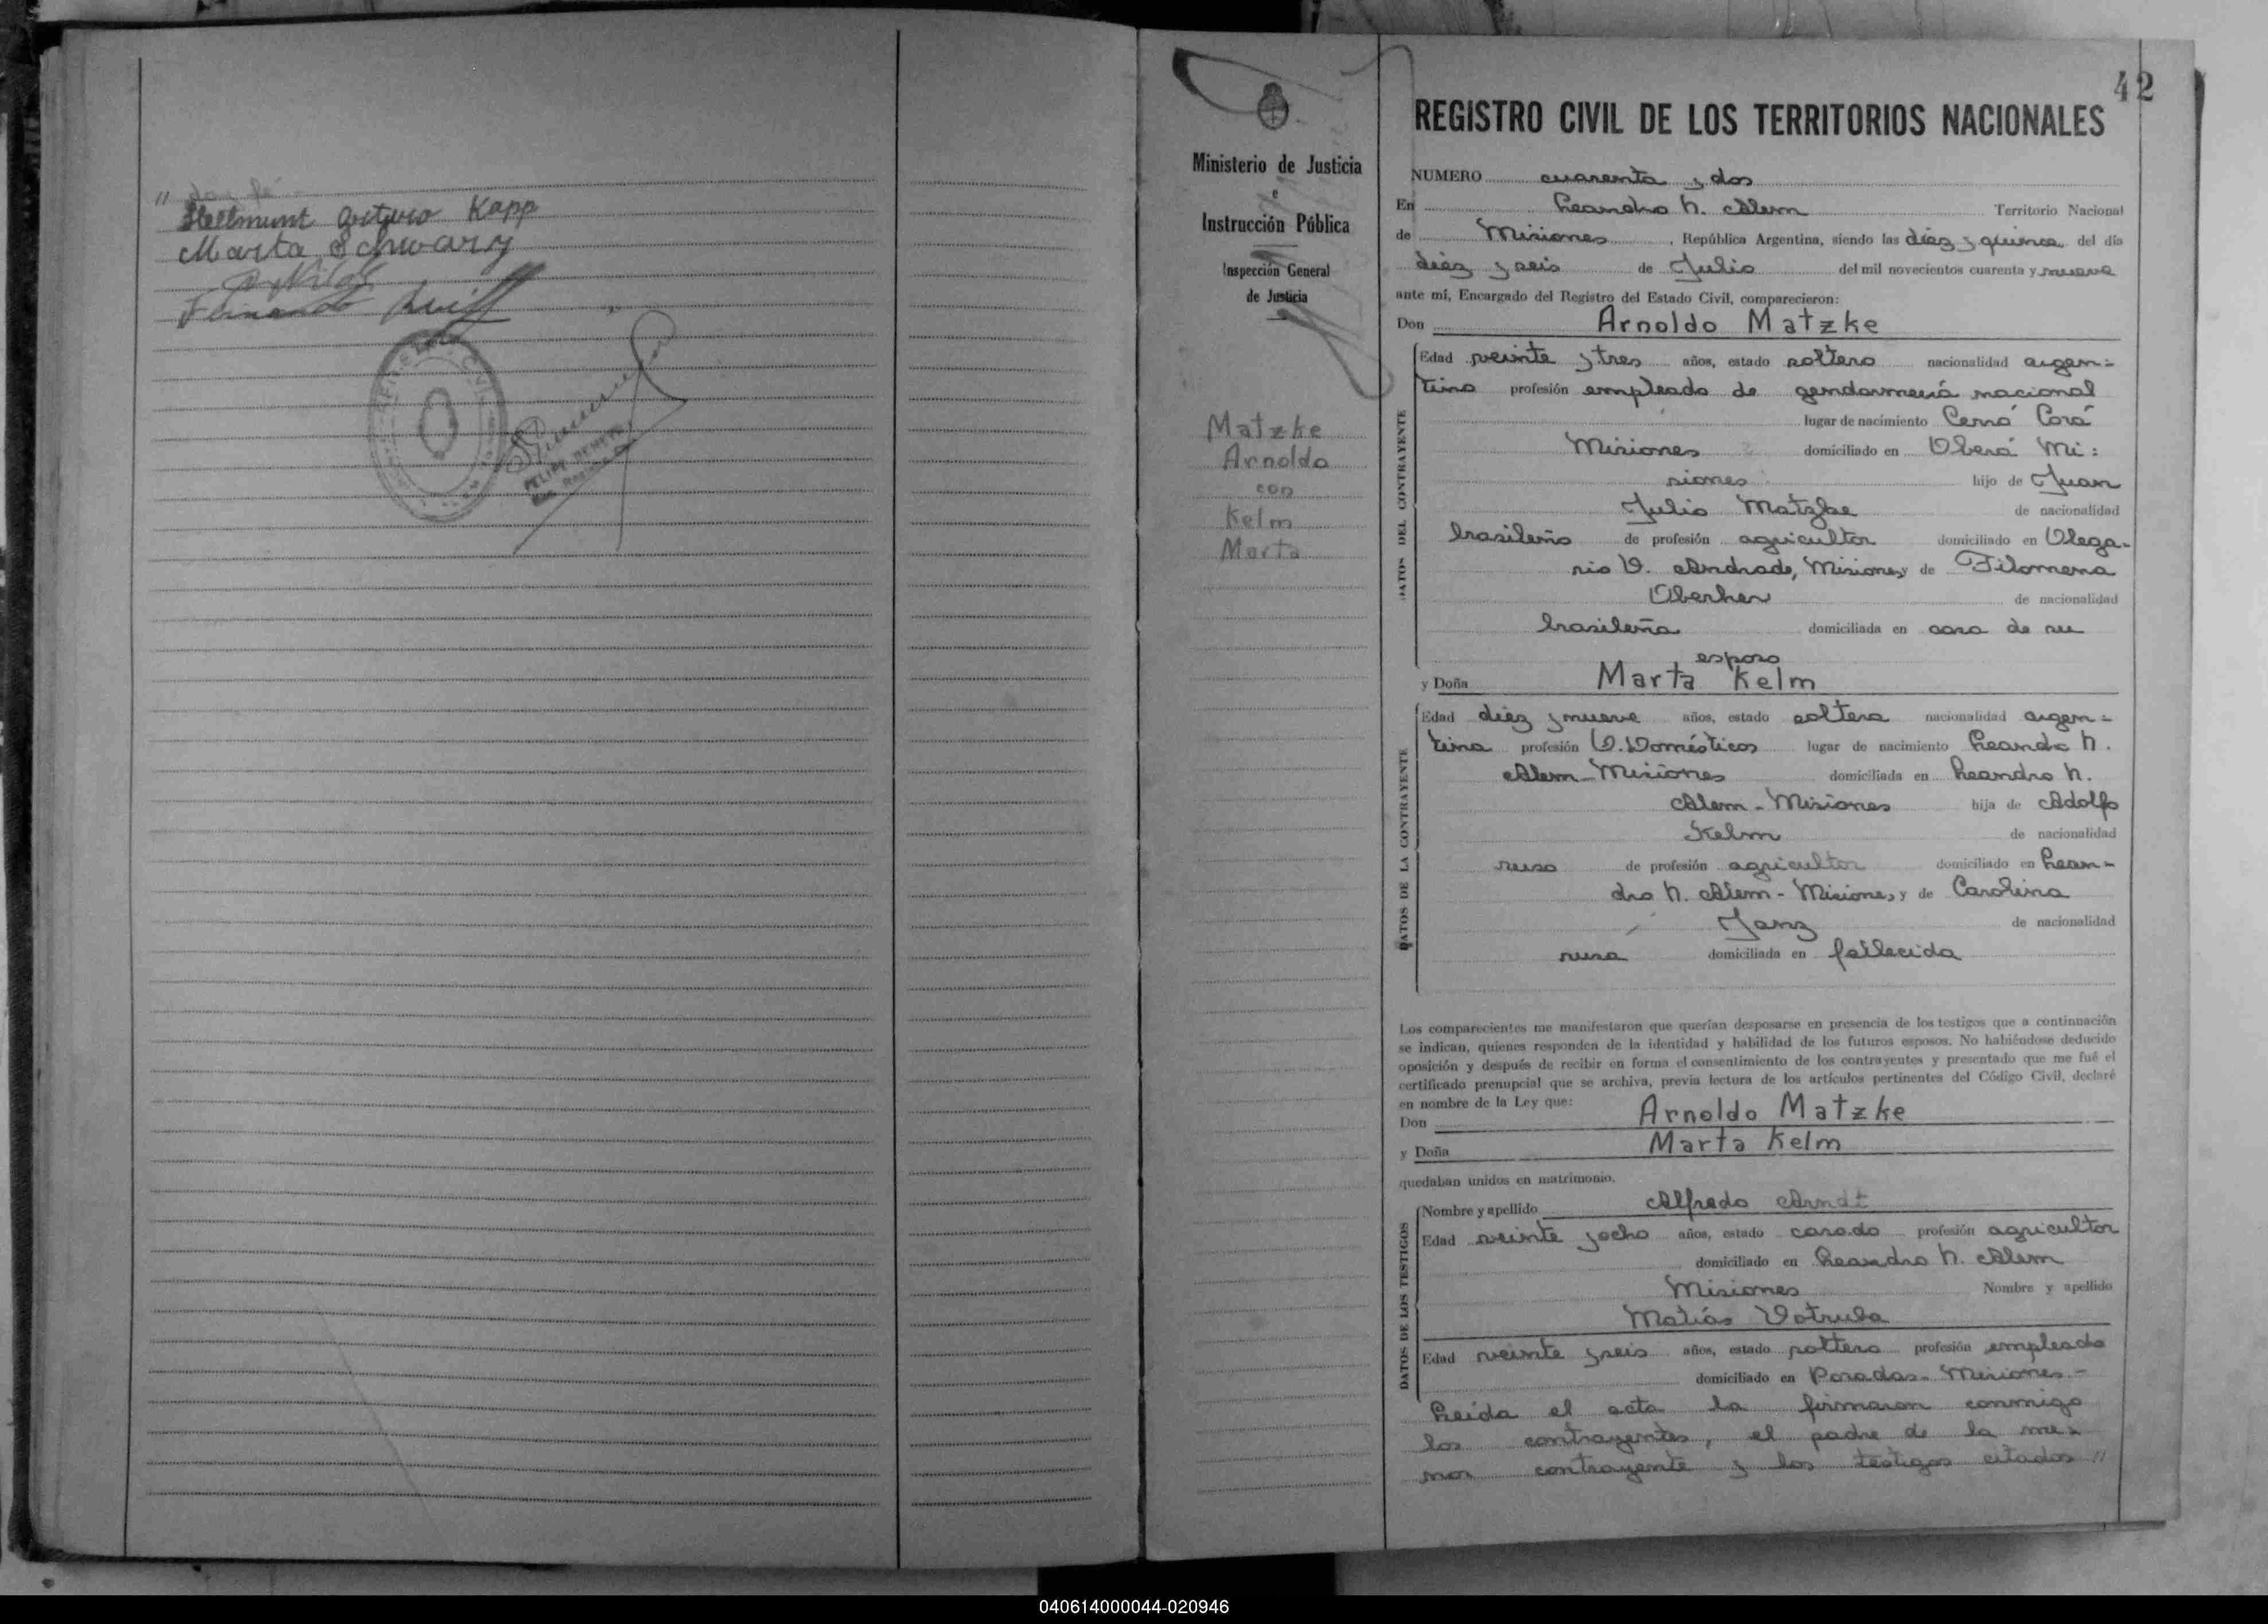 " doy fé
Hellmunt Arturo Kapp
Marta Schwarz
Fernando
FELIPE
42
Ministerio de Justicia
e
Instrucción Pública
Inspección General
de Justicia
Matzke
Arnoldo
con
Kelm
Marta
REGISTRO CIVIL DE LOS TERRITORIOS NACIONALES
NUMERO cuarenta y dos
En Leandro N. Alem Territorio Nacional
de Misiones, República Argentina, siendo las diez y quince del día
diez y seis de Julio del mil novecientos cuarenta y nueve
ante mí, Encargado del Registro del Estado Civil, comparecieron:
Don Arnoldo Matzke
DATOS DEL CONTRAYENTE
Edad veinte y tres años, estado soltero nacionalidad argen=
tino profesión empleado de gendarmería nacional
lugar de nacimiento Cerro Corá
Misiones domiciliado en Oberá Mi:
siones hijo de Juan
Julio Matzke de nacionalidad
brasileño de profesión agricultor domiciliado en Olega-
rio V. Andrade, Misiones y de Filomena
Oberher de nacionalidad
brasileña domiciliada en casa de su
esposo
y Doña Marta Kelm
DATOS DE LA CONTRAYENTE
Edad diez y nueve años, estado soltera nacionalidad argen=
tina profesión Q. Domésticos lugar de nacimiento Leandro N.
Alem-Misiones domiciliada en Leandro N.
Alem-Misiones hija de Adolfo
Kelm de nacionalidad
ruso de profesión agricultor domiciliado en Lean-
dro N. Alem-Misiones y de Carolina
Janz de nacionalidad
rusa domiciliada en fallecida
Los comparecientes me manifestaron que querían desposarse en presencia de los testigos que a continuación
se indican, quienes responden de la identidad y habilidad de los futuros esposos. No habiéndose deducido
oposición y después de recibir en forma el consentimiento de los contrayentes y presentado que me fué el
certificado prenupcial que se archiva, previa lectura de los artículos pertinentes del Código Civil, declaré
en nombre de la Ley que:
Don Arnoldo Matzke
y Doña Marta Kelm
quedaban unidos en matrimonio.
DATOS DE LOS TESTIGOS
Nombre y apellido Alfredo Arndt
Edad veinte y ocho años, estado casado profesión agricultor
domiciliado en Leandro N. Alem
Misiones Nombre y apellido
Matías Votruba
Edad veinte y seis años, estado soltero profesión empleado
domiciliado en Posadas-Misiones-
Leída el acta la firmaron conmigo
los contrayentes, el padre de la me=
nor contrayente y los testigos citados "
040614000044-020946